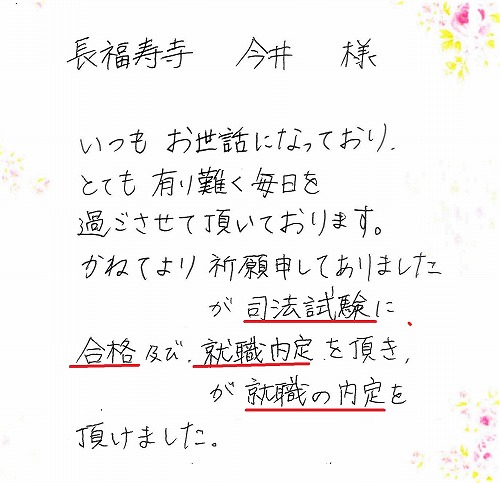 長福寿寺 今井 様
いつも お世話になっており、
とても 有り難く毎日を
過ごさせて頂いております。
かねてより 祈願申してありました
が 司法試験に
合格及び、就職内定を頂き、
が 就職の内定を
頂けました。